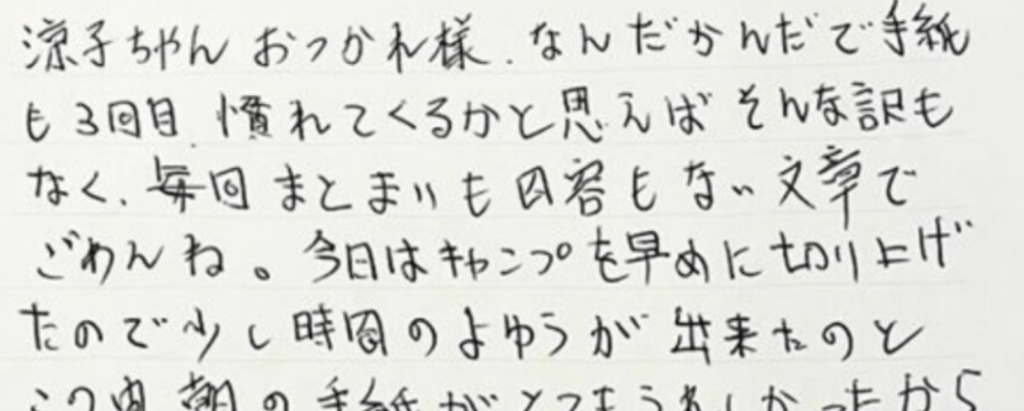 涼子ちゃん おつかれ様. なんだかんだで手紙
も3回目. 慣れてくるかと思えば そんな訳も
なく、毎回 まとまりも 内容も ない 文章で
ごめんね。今日はキャンプを早めに切り上げ
たので少し時間のよゆうが出来たのと
この内 朝の手紙がとってもうれしかったから